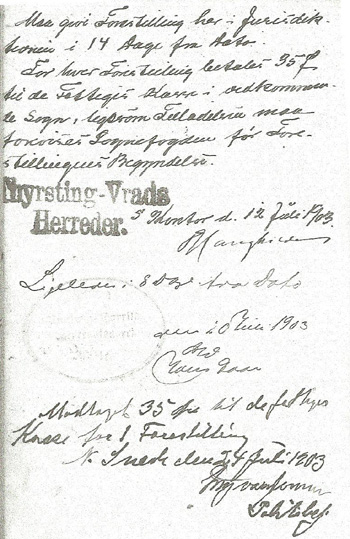 Maa give Forestilling her i Jurisdik-
tionen i 14 Dage fra Dato.
For hver Forestilling betales 35 Ø
til de Fattiges Kasse i vedkommen-
de Sogn, ligesom Tilladelsen maa
forevises Sognefogden før Fore-
stillingens Begyndelse.
Thyrsting-Vrads
Herreder.s Kontor d. 12 Juli 1903.
Ligeledes i 8 Dage fra Dato
den 20 Juli 1903
Modtaget 35 Øre til de fattiges
Kasse fra 1 Forestilling
N. Snede den 24 Juli 1903